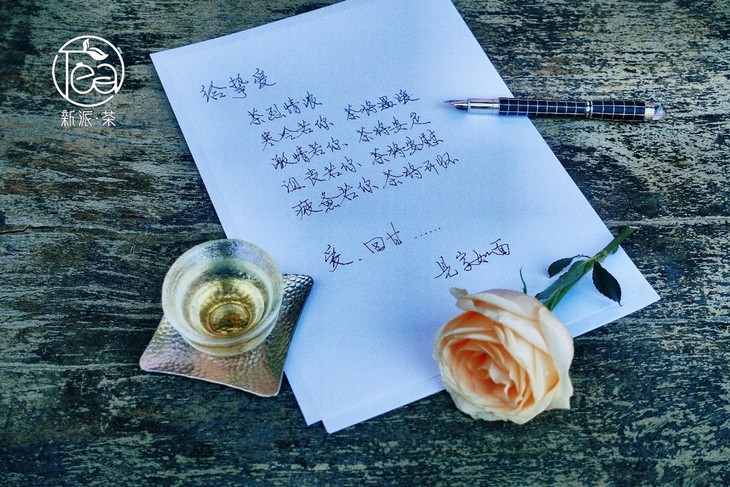 Tea
新派·茶
给挚爱
茶烈情浓
寒冷若你、茶将温暖
激情若你、茶将安定
沮丧若你、茶将安慰
疲惫若你、茶将开怀
爱、回甘……
见字如面